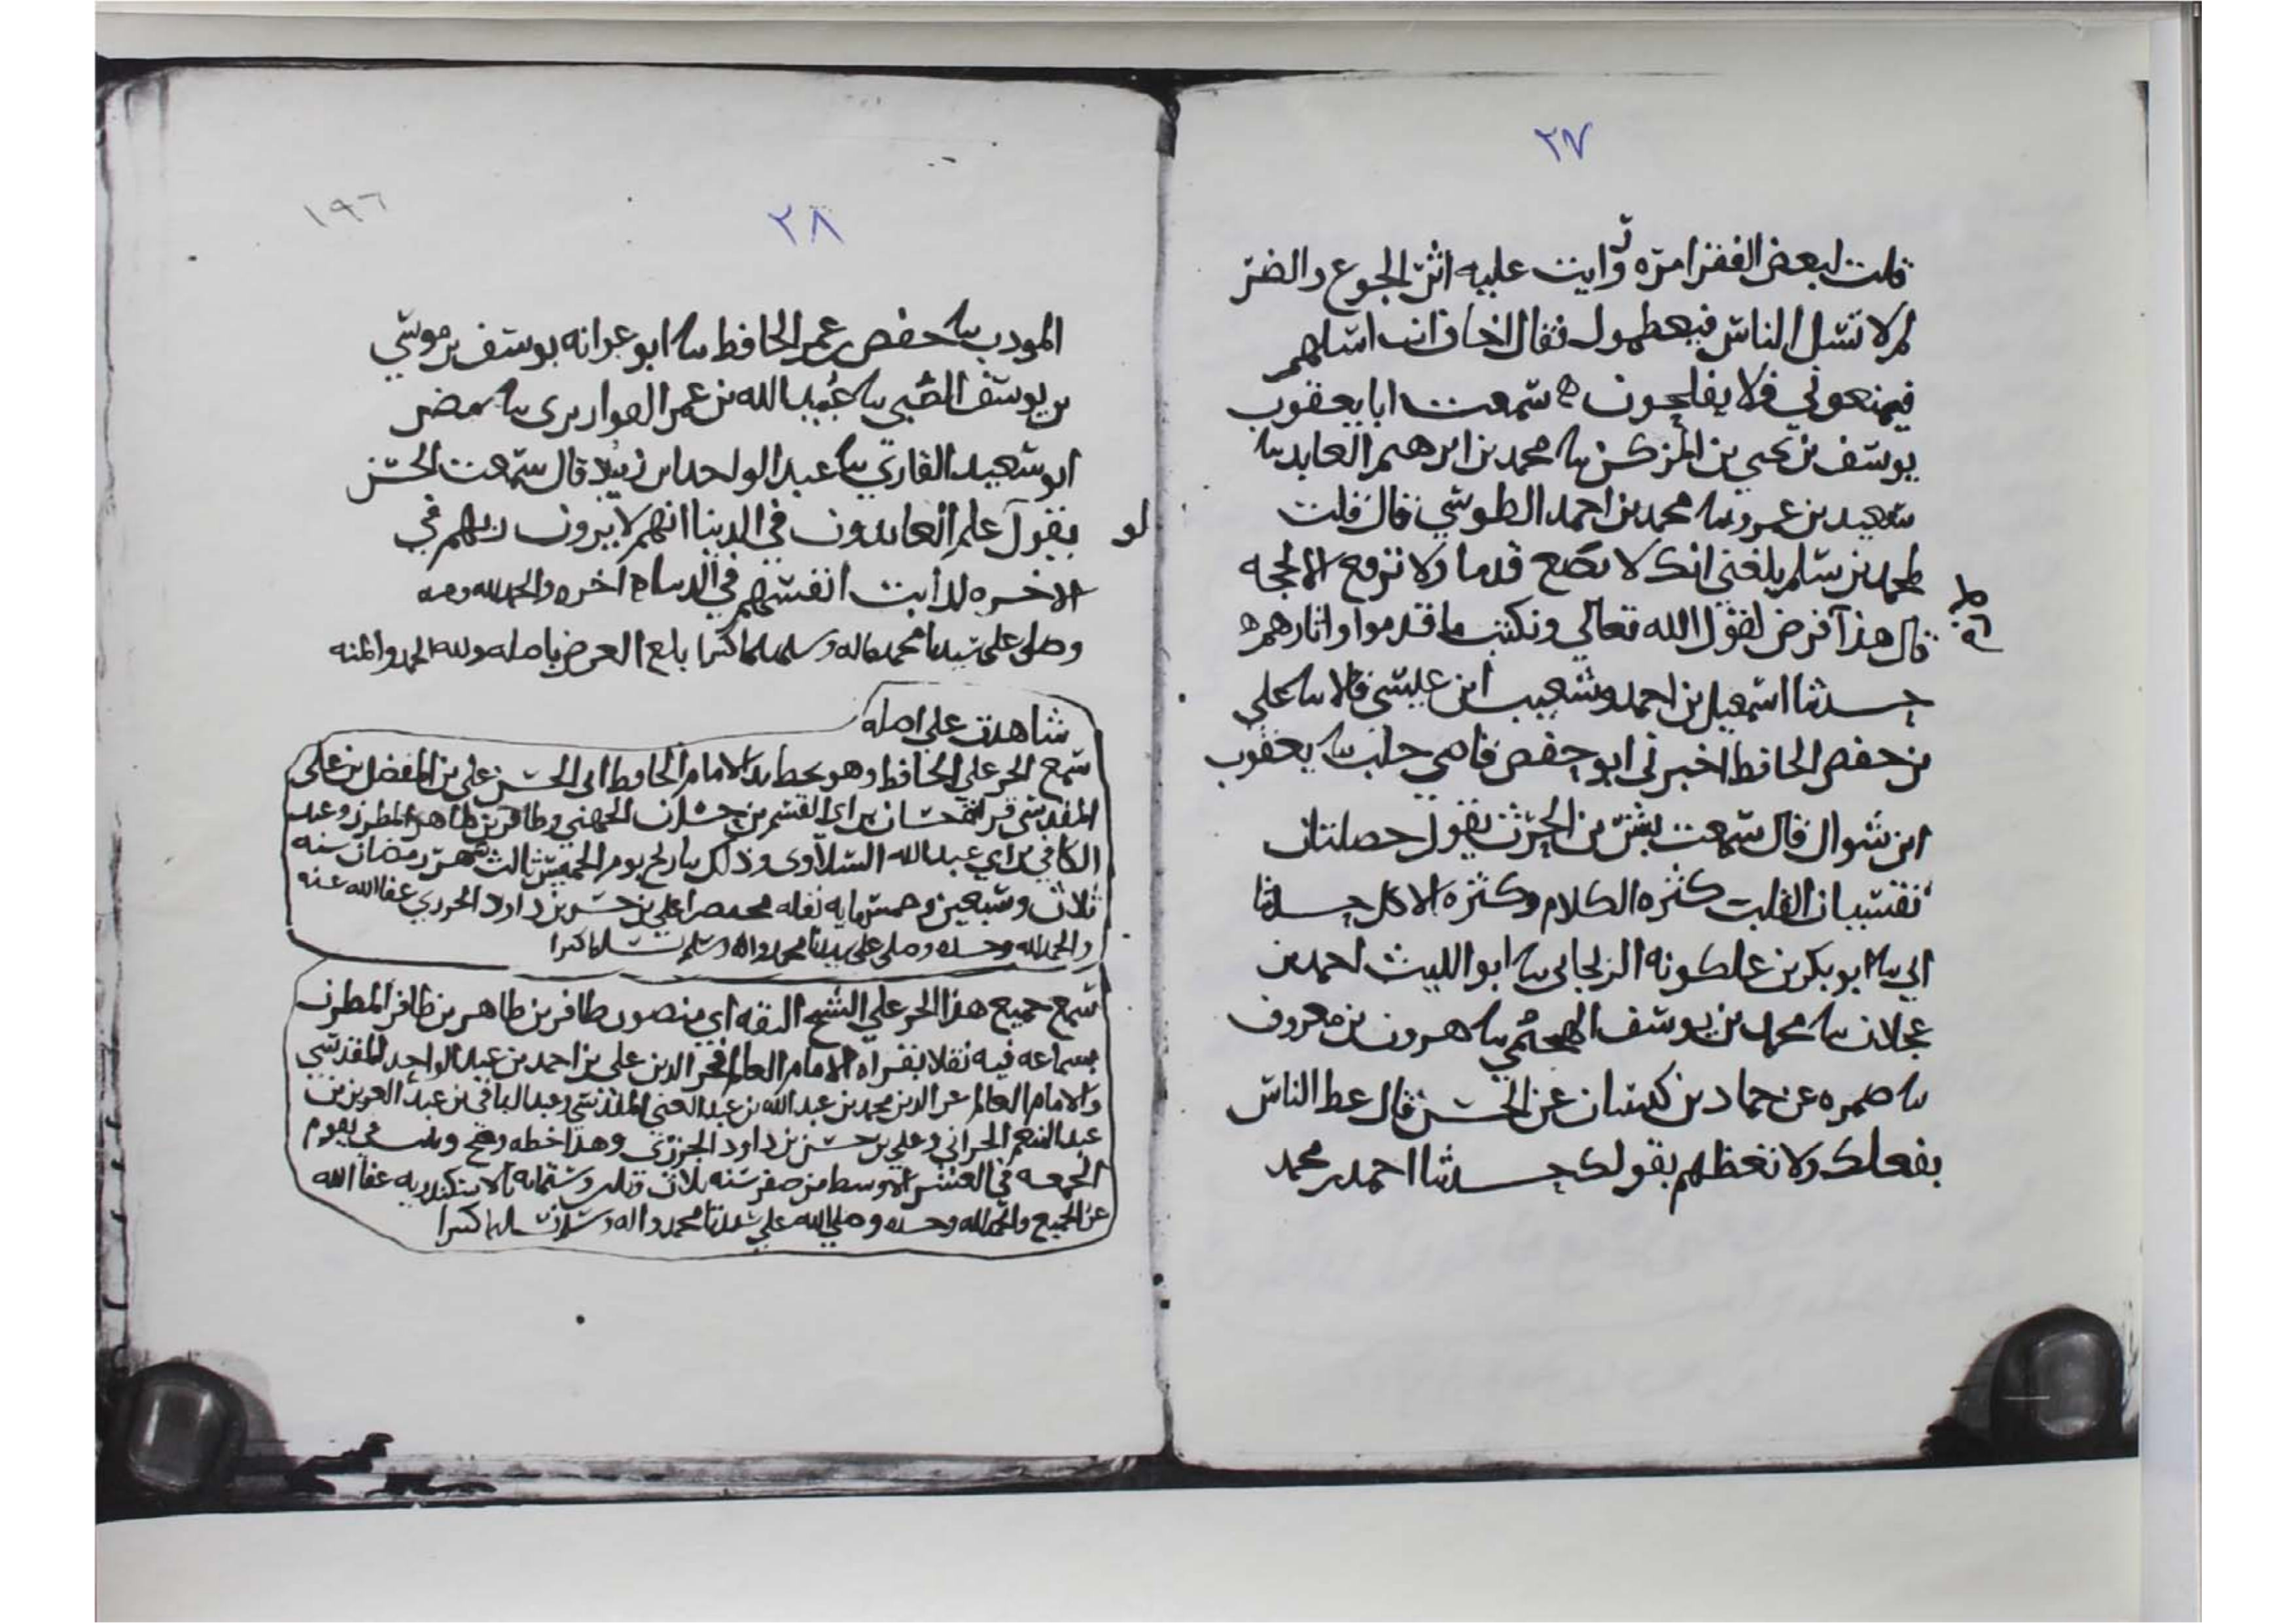 ٢٧
قلت لبعض الفقرا مرة ورايت عليه اثر الجوع والضر
لم لا تسل الناس فيعطوك فقال اخاف ان اسلهم
فيمنعوني فلا يفلحون ه سمعت ابا يعقوب
يوسف بن يحيى بن المزكن سا محمد بن ابرهيم العابد سا
سعيد بن عمرو سا محمد بن احمد الطوسي قال قلت
لمحمد بن سلم بلغني انك لا تضع قدما ولا ترفع الا لحجه
قال هذا فرض لقول الله تعالى ونكتب ما قدموا واثارهم ه
حدثنا اسمعيل بن احمد وشعيب ابن عيسى قالا سا علي
بن حفص الحافظ اخبرني ابو حفص قاضي حلب سا يعقوب
ابن شوال قال سمعت بشر بن الحرث يقول خصلتان
تقسيان القلب كثره الكلام وكثره الاكل حدثنا
ابي سا ابو بكر بن علكونه الزنجاني سا ابو الليث احمد بن
عجلان سا محمد بن يوسف سا هرون بن معروف
سا ضمره عن حماد بن كيسان عن الحسن قال عظ الناس
بفعلك ولا تعظهم بقولك حدثنا احمد بن محمد
٢٨
١٩٦
المودب سا حفص بن عمر الحافظ سا ابو عوانه يوسف بن موسي
بن يوسف الضبي سا عبيد الله بن عمر القواريري سا مضر
ابو سعيد القاري سا عبد الواحد بن زيد قال سمعت الحسن
يقول لو علم العابدون في الدنيا انهم لا يرون ربهم في
الاخره لذابت انفسهم في الدنيا اخره والحمد لله
وصلى على سيدنا محمد واله وسلم تسليما كثيرا بلغ العرض باصله ولله الحمد والمنه
شاهدت على اصله
سمع الجز على الحافظ وهو بخط يد الامام الحافظ ابي الحسن علي بن المفضل بن علي
المقدسي حسان بن ابي القسم بن الجهني وظافر بن طاهر المطرز وعبد
الكافي بن ابي عبد الله السلاوي وذلك بتاريخ يوم الخميس ثالث شهر رمضان سنه
ثلاث وسبعين وخمس مايه نقله مختصرا علي بن حسن بن داود الجزري عفا الله عنه
والحمد لله وحده وصلى على سيدنا محمد واله وسلم تسليما كثيرا
سمع جميع هذا الجز على الشيخ الثقه ابي منصور ظافر بن طاهر بن ظافر المطرز
بسماعه فيه نقلا بقراه الامام العالم فخر الدين علي بن احمد بن عبد الواحد المقدسي
والامام العالم عز الدين محمد بن عبد الله بن عبد الغني المقدسي وعبد الباقي بن عبد العزيز بن
عبد المنعم الحراني وعلي بن حسن بن داود الجزري وهذا خطه وصح وثبت في يوم
الجمعه في العشر الاوسط من صفر سنه ثلاث وثلثين وستمايه بالاسكندريه عفا الله
عن الجميع والحمد لله وحده وصلى الله على سيدنا محمد واله وسلم تسليما كثيرا